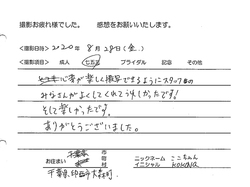 撮影お疲れ様でした。　感想をお願いいたします。
<撮影日時> 2020年 8月 29日(金)
<撮影項目> 成人　七五三　ブライダル　記念　その他
心春が楽しく撮影できるようにスタッフの
みなさんがよくしてくれてうれしかったです!
そして楽しかったです。
ありがとうございました。
千葉県　市
お住まい　都　ニックネーム ここちゃん
町　イニシャル KOKOHA
千葉県印西市大森町